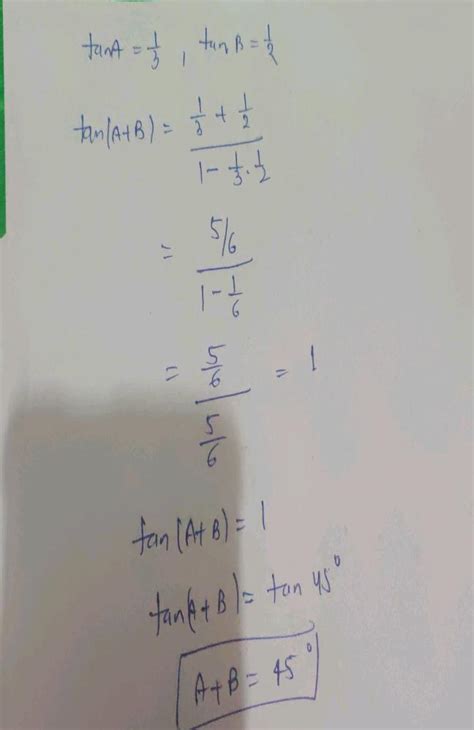 tanA = 1/3 , tan B = 1/2
tan(A+B) = (1/3 + 1/2) / (1 - 1/3 . 1/2)
= (5/6) / (1 - 1/6)
= (5/6) / (5/6) = 1
tan(A+B) = 1
tan(A+B) = tan 45°
A+B = 45°